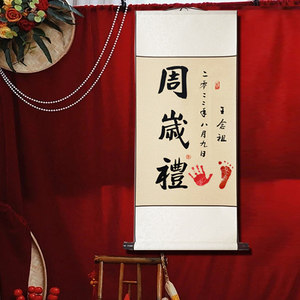 王念祖
二零二二年八月九日
周歲禮